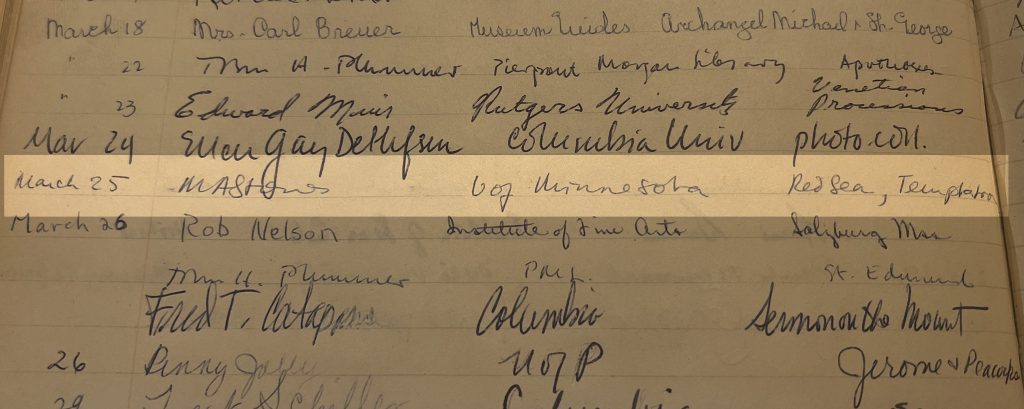 March 18 Mrs. Carl Breuer Museum Guides Archangel Michael, St. George
" 22 H. Plummer Pierpont Morgan Library Apotheoses
" 23 Edward Muir Rutgers University Venetian Processions
Mar 24 Ellen Gay Detlefsen Columbia Univ photo. coll.
March 25 U of Minnesota Red Sea, Temptation
March 26 Rob Nelson Institute of Fine Arts Salzburg
H. Plummer PML. St. Edmund
Fred T. Columbia Sermon on the Mount
26 Penny Jolly U of P Jerome + Peacocks
29 Columbia